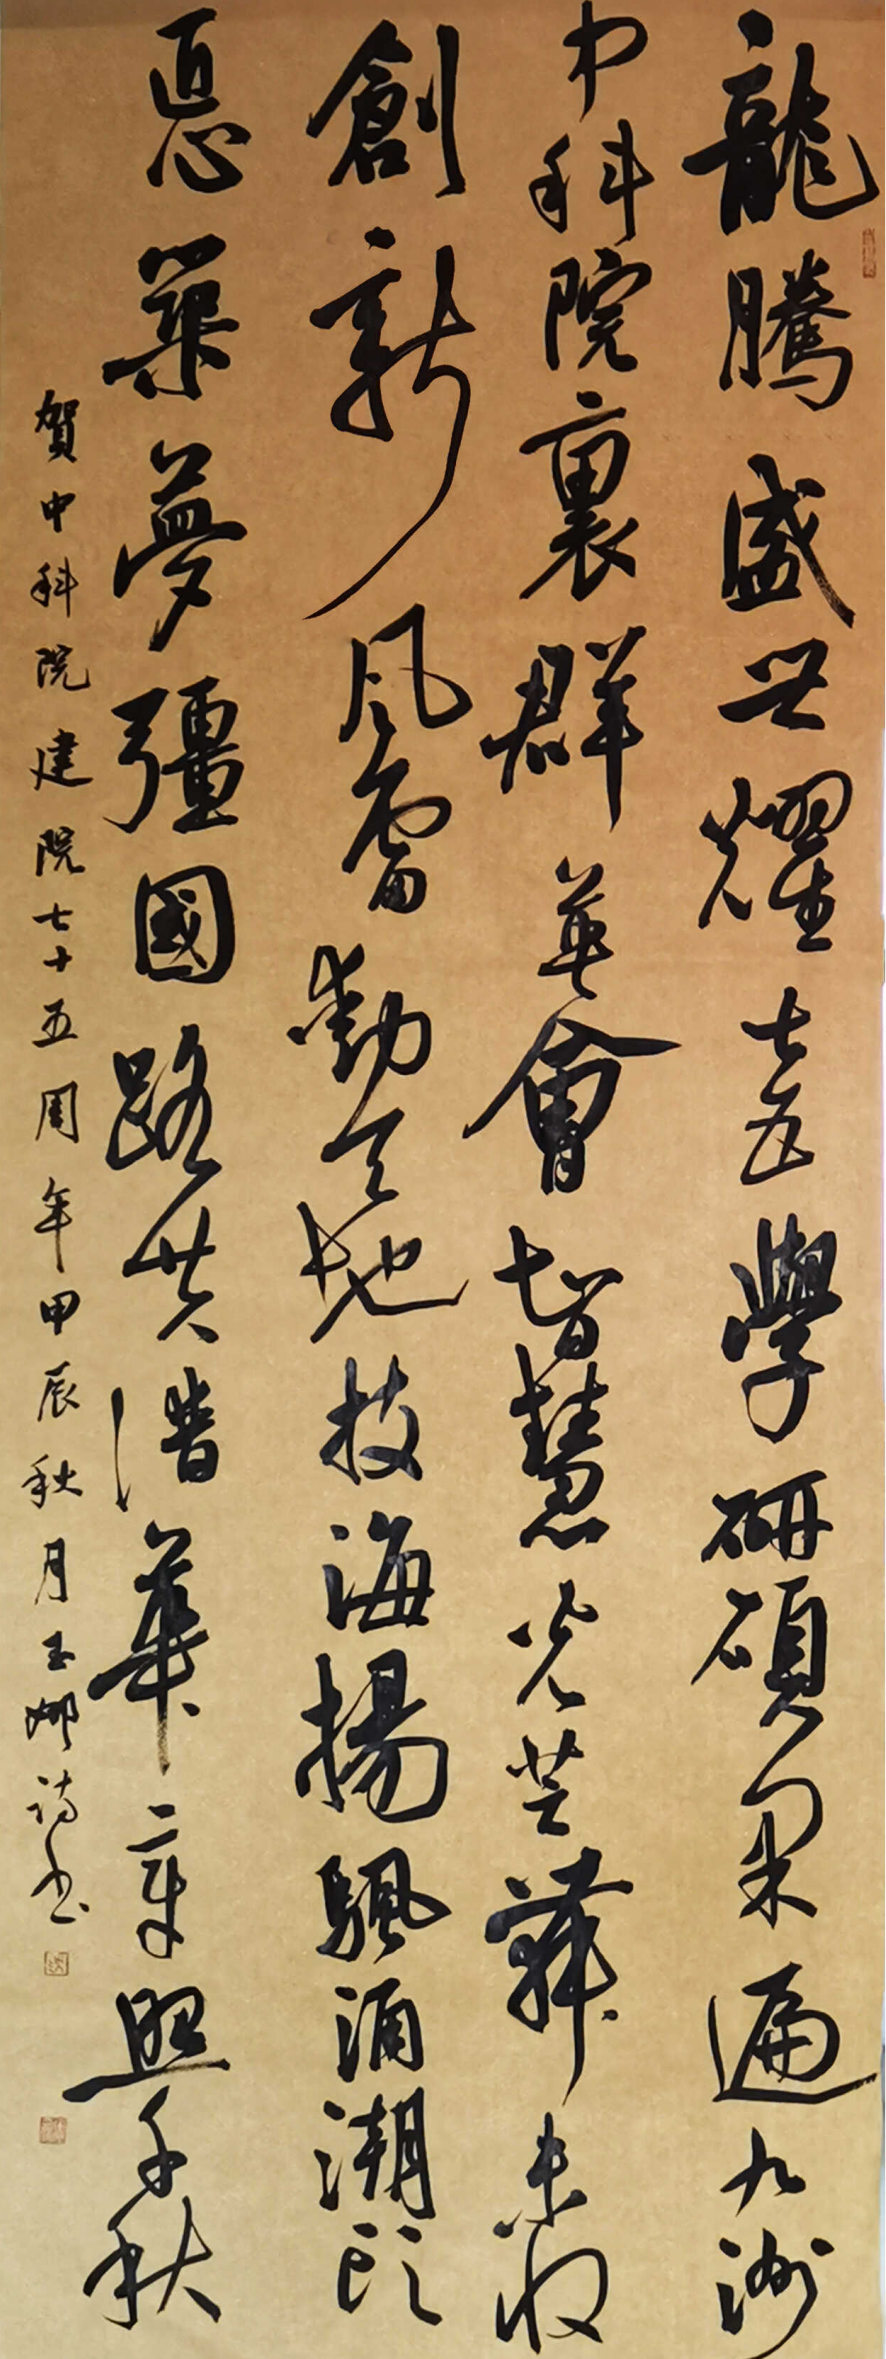 龍騰盛世耀七五學研碩果遍九洲
中科院裏群英會智慧光芒舞未收
創新風雷動天地技海揚颿涌潮頭
匠心築夢彊國路共譜華章照千秋
賀中科院建院七十五周年甲辰秋月玉娜詩書